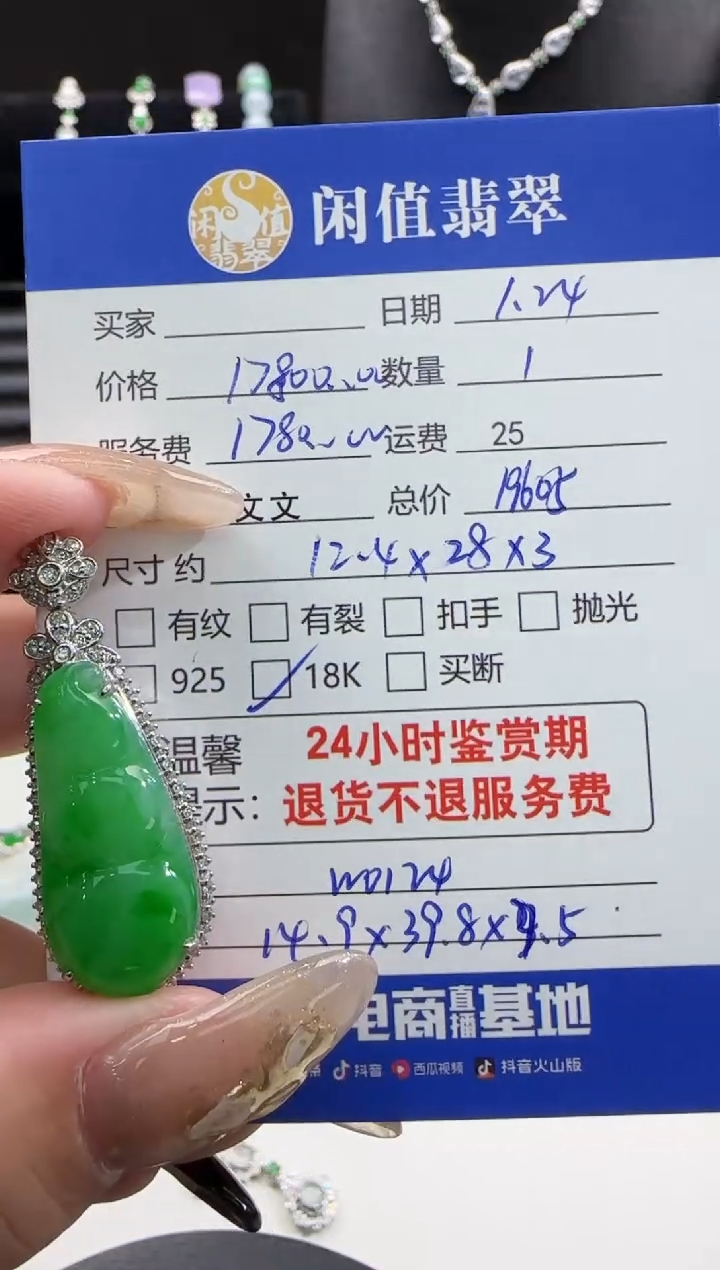 闲值翡翠 闲值翡翠
买家 日期 1.24
价格 17800.00 数量 1
服务费 1780.00 运费 25
文文 总价 19605
尺寸约 12.4×28×3
有纹 有裂 扣手 抛光
925 18K 买断
温馨 24小时鉴赏期
示: 退货不退服务费
WD124
14.9×39.8×9.5
电商直播基地
抖音 西瓜视频 抖音火山版